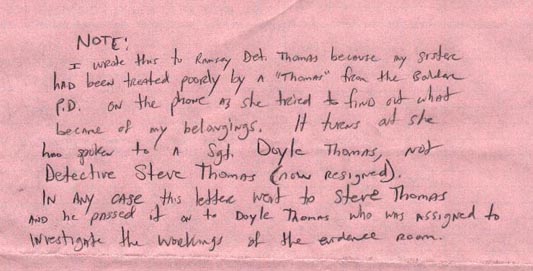 NOTE:
I wrote this to Ramsey Det. Thomas because my sister
had been treated poorly by a "Thomas" from the Boulder
P.D. on the phone as she tried to find out what
became of my belongings. It turns out she
had spoken to a Sgt. Doyle Thomas, not
Detective Steve Thomas (now resigned).
In any case this letter went to Steve Thomas
and he passed it on to Doyle Thomas who was assigned to
investigate the workings of the evidence room.